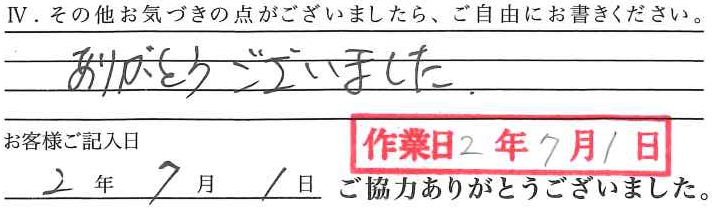 Ⅳ．その他お気づきの点がございましたら、ご自由にお書きください。
ありがとうございました.
お客様ご記入日
作業日2年7月1日
2年7月1日
ご協力ありがとうございました。